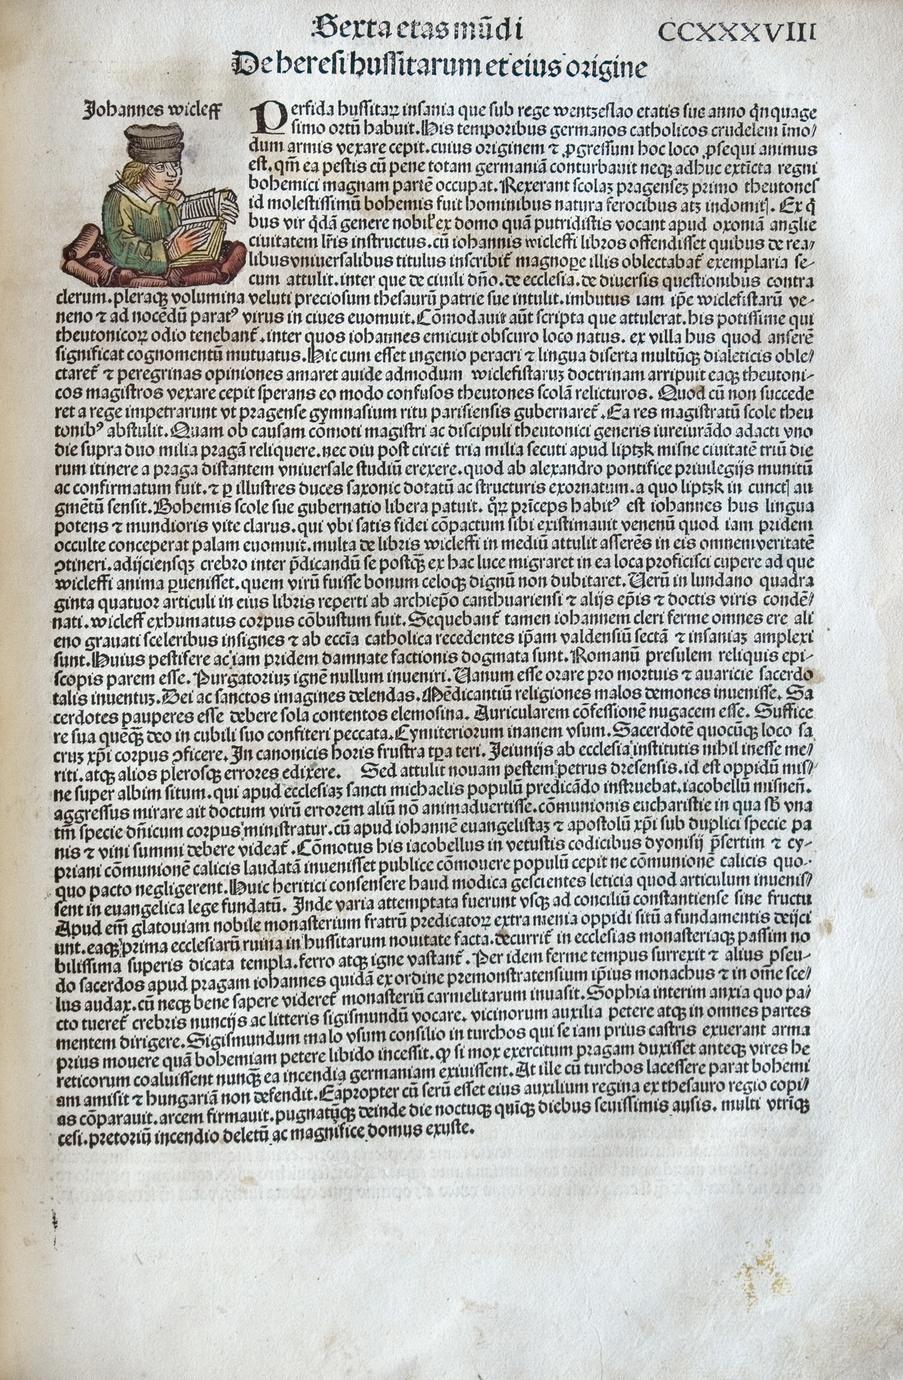 Sexta etas mũdi CCXXXVIII
De heresi hussitarum et eius origine
Johannes wicleff
Perfida hussitaꝝ insania que sub rege wentzeslao etatis sue anno q̃nquage
simo ortũ habuit. His temporibus germanos catholicos crudelem im̃o/
dum armis vexare cepit. cuius originem ⁊ ꝓgressum hoc loco ꝓsequi animus
est. qm̃ ea pestis cũ pene totam germaniã conturbauit neqꝫ adhuc extĩcta regni
bohemici magnam partẽ occupat. Rexerant scolaꝫ pragenseꝫ primo theutones
id molestissimũ bohemis fuit hominibus natura ferocibus atꝫ indomit. Ex q̃
bus vir q̃dã genere nobil ex domo quã putridistis vocant apud oxoniã anglie
ciuitatem lr̃is instructus. cũ iohannis wicleffi libros offendisset quibus de rea/
libus vniuersalibus titulus inscribit̃ magnope illis oblectabat̃ exemplaria se-
cum attulit. inter que de ciuili dño. de ecclesia. de diuersis questionibus contra
clerum. pleraqꝫ volumina veluti preciosum thesaurũ patrie sue intulit. imbutus iam ip̃e wiclefistarũ ve-
neno ⁊ ad nocẽdũ paratꝰ virus in ciues euomuit. Cõmodauit aũt scripta que attulerat. his potissime qui
theutonicoꝝ odio tenebant̃. inter quos iohannes emicuit obscuro loco natus. ex villa hus quod anserẽ
significat cognomentũ mutuatus. Hic cum esset ingenio peracri ⁊ lingua diserta multũqꝫ dialeticis oble/
ctaret̃ ⁊ peregrinas opiniones amaret auide admodum wiclefistaruꝫ doctrinam arripuit eaqꝫ theutoni-
cos magistros vexare cepit sperans eo modo confusos theutones scolã relicturos. Quod cũ non succede
ret a rege impetrarunt vt pragense gymnasium ritu parisiensis gubernaret̃. Ea res magistratũ scole theu
tonibꝰ abstulit. Quam ob causam cõmoti magistri ac discipuli theutonici generis iureiurãdo adacti vno
die supra duo milia pragã reliquere. nec diu post circit̃ tria milia secuti apud liptzk misne ciuitatẽ triũ die
rum itinere a praga distantem vniuersale studiũ erexere. quod ab alexandro pontifice priuilegijs munitũ
ac confirmatum fuit. ⁊ ꝑ illustres duces saxonic dotatũ ac structuris exornatum. a quo liptzk in cunct au
gmẽtũ sensit. Bohemis scole sue gubernatio libera patuit. q̃ꝝ pr̃iceps habitꝰ est iohannes hus lingua
potens ⁊ mundioris vite clarus. qui vbi satis fidei cõpactum sibi existimauit venenũ quod iam pridem
occulte conceperat palam euomuit. multa de libris wicleffi in mediũ attulit asserẽs in eis omnem veritatẽ
ꝯtineri. adijciensqꝫ crebro inter p̃dicandũ se postqꝫ ex hac luce migraret in ea loca proficisci cupere ad que
wicleffi anima ꝑuenisset. quem virũ fuisse bonum celoqꝫ dignũ non dubitaret. Uerũ in lundano quadra
ginta quatuor articuli in eius libris reperti ab archiep̃o canthuariensi ⁊ alijs ep̃is ⁊ doctis viris condẽ/
nati. wicleff exhumatus corpus cõbustum fuit. Sequebant̃ tamen iohannem cleri ferme omnes ere ali
eno grauati sceleribus insignes ⁊ ab eccĩa catholica recedentes ip̃am valdensiũ sectã ⁊ insaniaꝫ amplexi
sunt. Huius pestifere ac iam pridem damnate factionis dogmata sunt. Romanũ presulem reliquis epi-
scopis parem esse. Purgatoriuꝫ ignẽ nullum inueniri. Uanum esse orare pro mortuis ⁊ auaricie sacerdo
talis inuentuꝫ. Dei ac sanctos imagines delendas. Mẽdicantiũ religiones malos demones inuenisse. Sa
cerdotes pauperes esse debere sola contentos elemosina. Auricularem cõfessionẽ nugacem esse. Suffice
re sua quẽqꝫ deo in cubili suo confiteri peccata. Cymiteriorum inanem vsum. Sacerdotẽ quocũqꝫ loco sa
cruꝫ xp̃i corpus ꝯficere. In canonicis horis frustra tp̃a teri. Jeiunijs ab ecclesia institutis nihil inesse me/
riti. atqꝫ alios plerosqꝫ errores edixere. Sed attulit nouam pestem petrus dresensis. id est oppidũ mis/
ne super albim situm. qui apud ecclesiaꝫ sancti michaelis populũ predicãdo instruebat. iacobellũ misneñ.
aggressus mirare ait doctum virũ errorem aliũ nõ animaduertisse. cõmunionis eucharistie in qua sb̃ vna
tm̃ specie dñicum corpus ministratur. cũ apud iohannẽ euangelistaꝫ ⁊ apostolũ xp̃i sub duplici specie pa
nis ⁊ vini summi debere videat̃. Cõmotus his iacobellus in vetustis codicibus dyonisij p̃sertim ⁊ cy-
priani cõmunionẽ calicis laudatã inuenisset publice cõmouere populũ cepit ne cõmunionẽ calicis quo-
quo pacto negligerent. Huic heritici consensere haud modica gescientes leticia quod articulum inuenis/
sent in euangelica lege fundatũ. Inde varia attemptata fuerunt vsqꝫ ad conciliũ constantiense sine fructu
Apud em̃ glatouiam nobile monasterium fratrũ predicatoꝝ extra menia oppidi sitũ a fundamentis deijci
unt. eaqꝫ prima ecclesiarũ ruina in hussitarum nouitate facta. decurrit̃ in ecclesias monasteriaqꝫ passim no
bilissima superis dicata templa. ferro atqꝫ igne vastant̃. Per idem ferme tempus surrexit ⁊ alius pseu-
do sacerdos apud pragam iohannes quidã ex ordine premonstratensium ip̃ius monachus ⁊ in om̃e sce/
lus audax. cũ neqꝫ bene sapere videret̃ monasteriũ carmelitarum inuasit. Sophia interim anxia quo pa/
cto tueret̃ crebris nuncijs ac litteris sigismundũ vocare. vicinorum auxilia petere atqꝫ in omnes partes
mentem dirigere. Sigismundum malo vsum consilio in turchos qui se iam prius castris exuerant arma
prius mouere quã bohemiam petere libido incessit. ꝙ si mox exercitum pragam duxisset anteqꝫ vires he
reticorum coaluissent nunqꝫ ea incendia germaniam exiuissent. At ille cũ turchos lacessere parat bohemi
am amisit ⁊ hungariã non defendit. Eapropter cũ serũ esset eius auxilium regina ex thesauro regio copi/
as cõparauit. arcem firmauit. pugnatũqꝫ deinde die noctuqꝫ quĩqꝫ diebus seuissimis ausis. multi vtrĩqꝫ
cesi. pretoriũ incendio deletũ ac magnifice domus exuste.